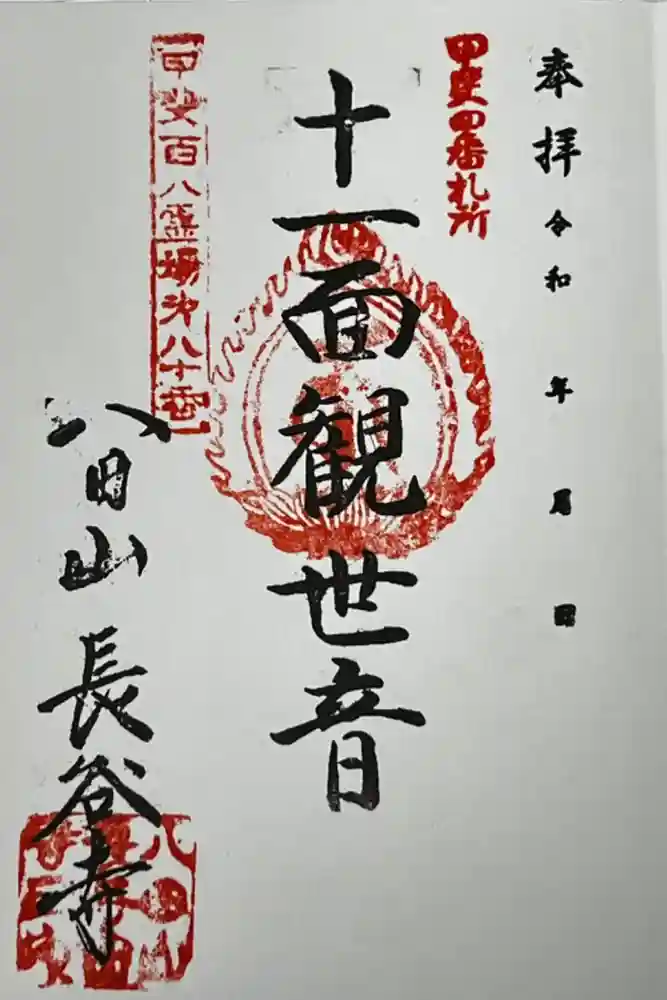 奉拝 令和 年 月 日
甲斐四番札所
十一面観世音
甲斐百八霊場第八十番
八田山長谷寺